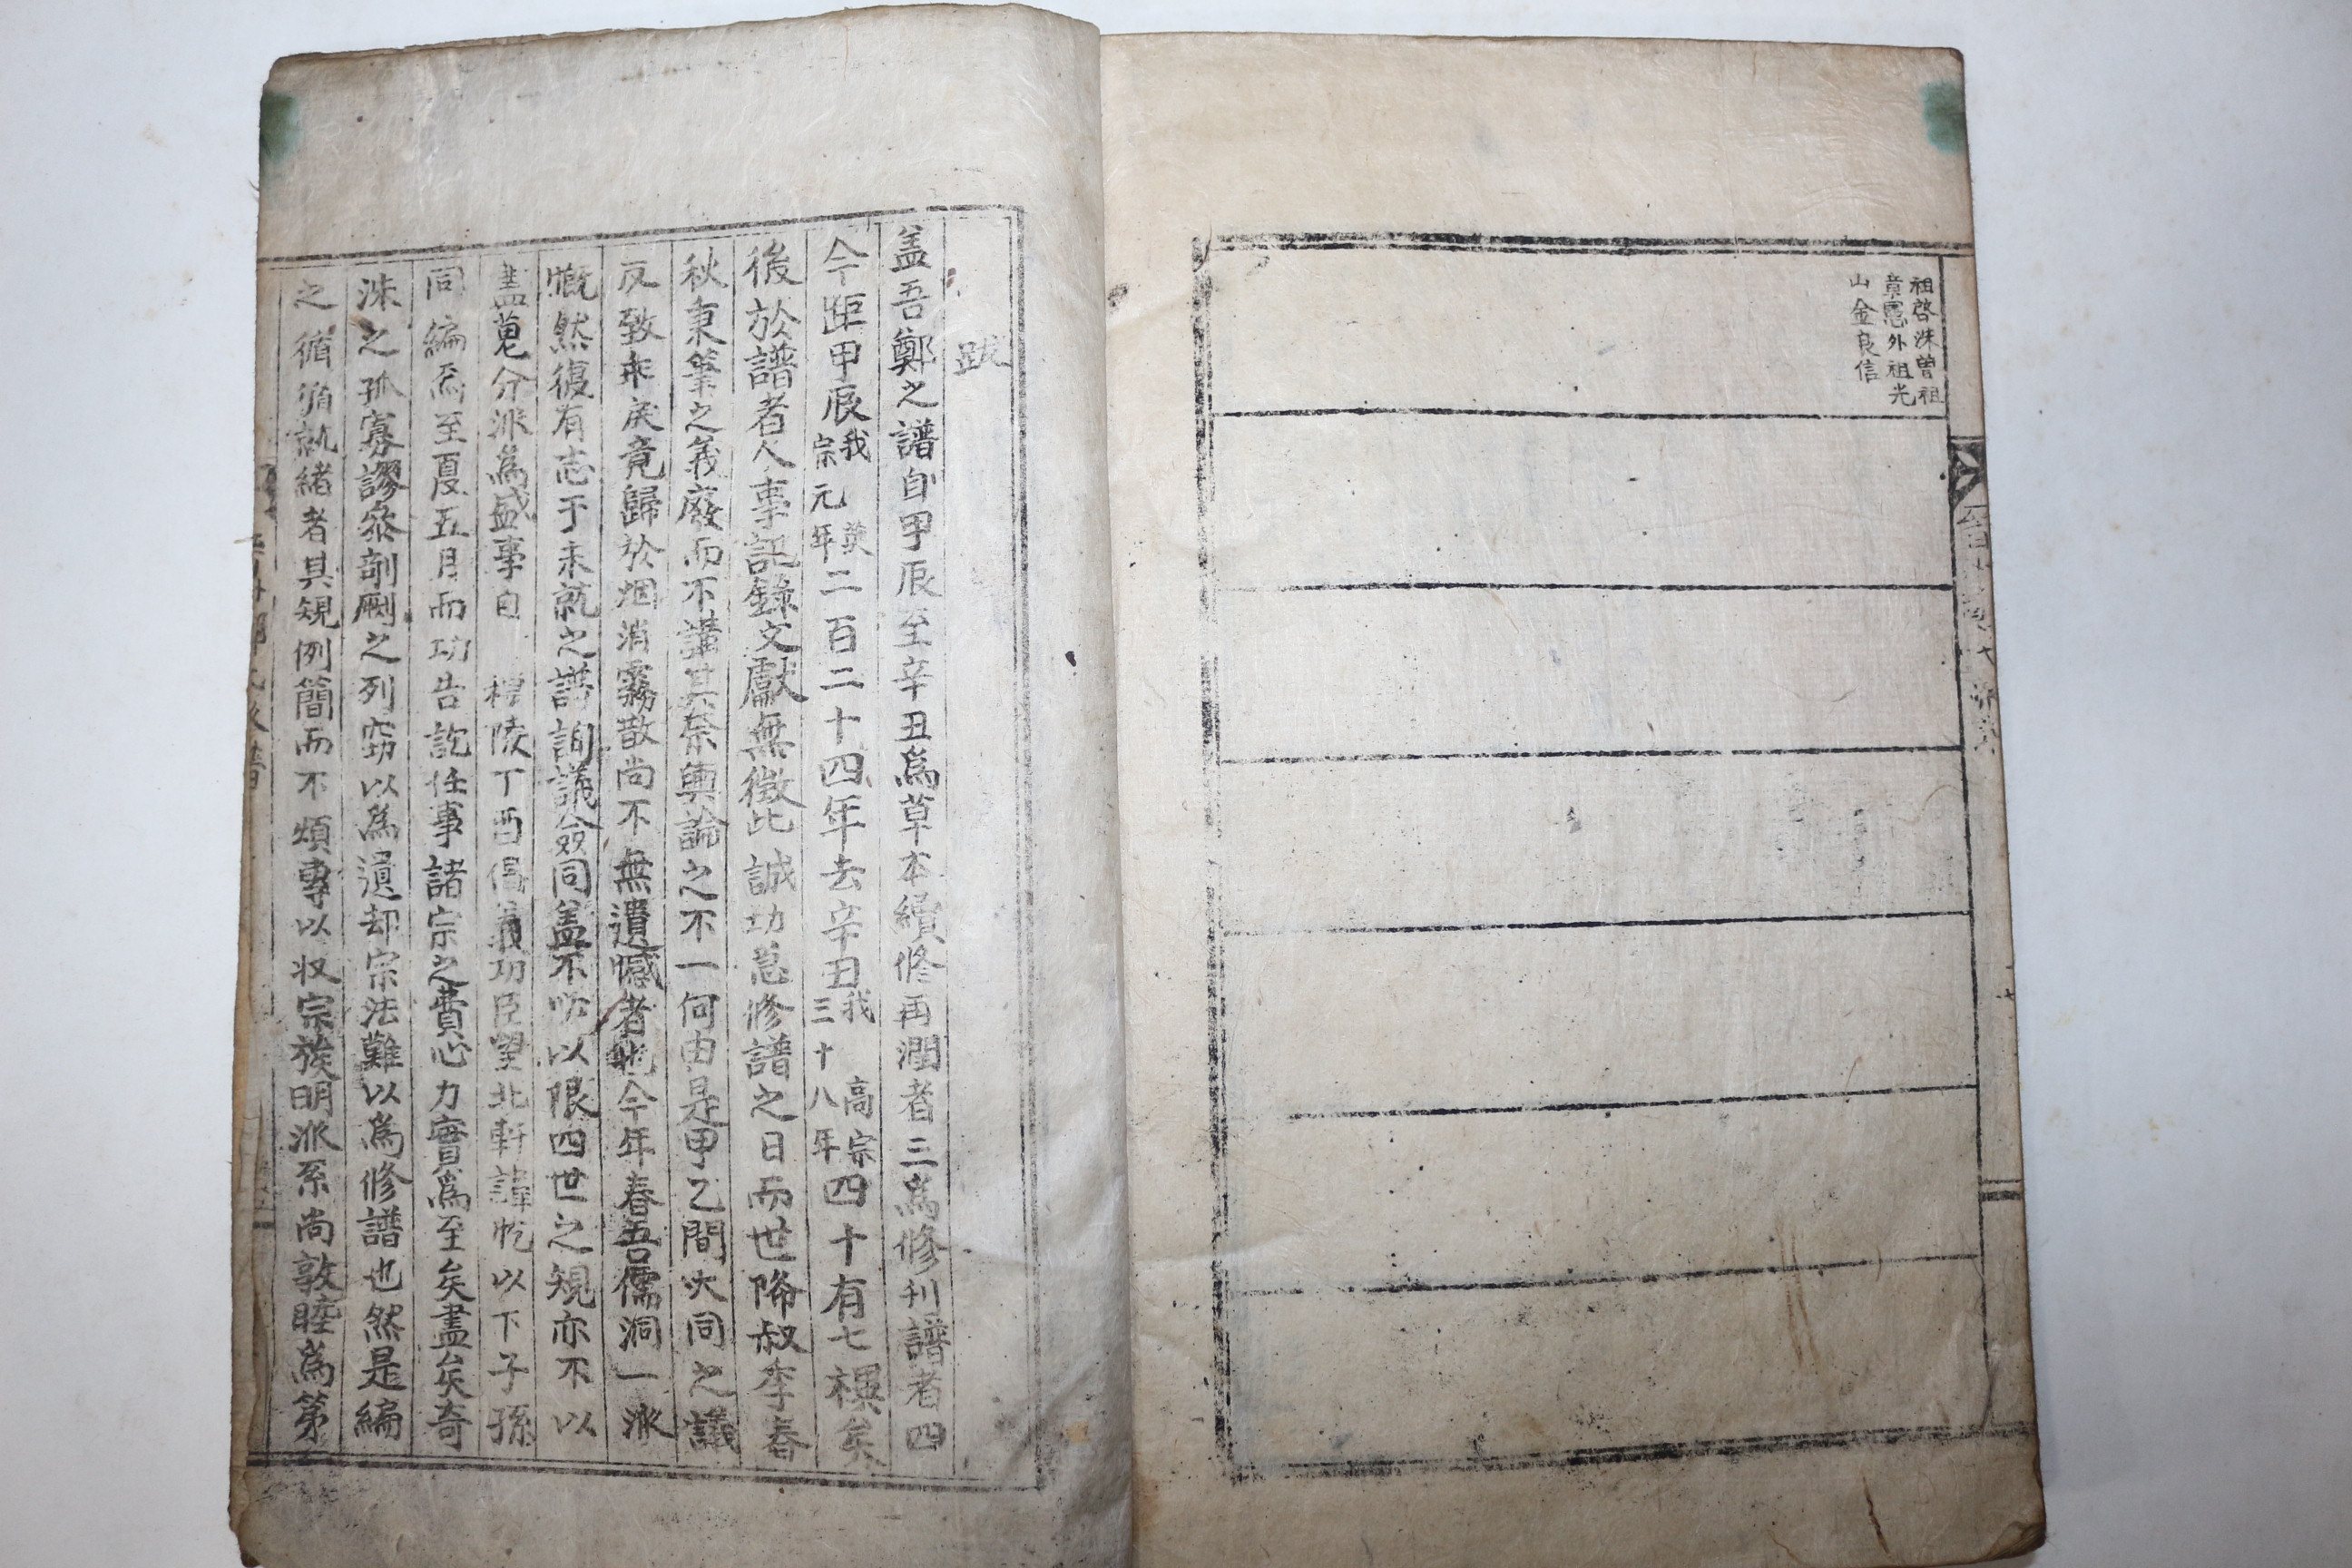 祖啓洙曾祖
章憲外祖光
山金良信
跋
盖吾鄭之譜自甲辰至辛丑爲草本續修再潤者三爲修刊譜者四
今距甲辰我英宗元年二百二十四年去辛丑我高宗三十八年四十有七禩矣
後於譜者人事記錄文獻無徵比誠功急修譜之日而世降叔季春
秋秉筆之義廢而不講其奈輿論之不一何由是甲乙間大同之議
反致乖戾竟歸於烟消霧散尚不無遺憾者也今年春吾儒洞一派
慨然復有志于未就之譜詢議僉同盖不以限四世之規亦不以
盡蒐分派爲盛事自 穆陵丁酉倡義功臣望北軒諱忔以下子孫
同編焉至夏五月而功告訖任事諸宗之費心力實爲至矣盡矣奇
洙之孤寡謬叅剞劂之列窃以爲遺却宗法難以爲修譜也然是編
之循循就緒者其規例簡而不煩專以收宗族明派系尚敦睦爲第